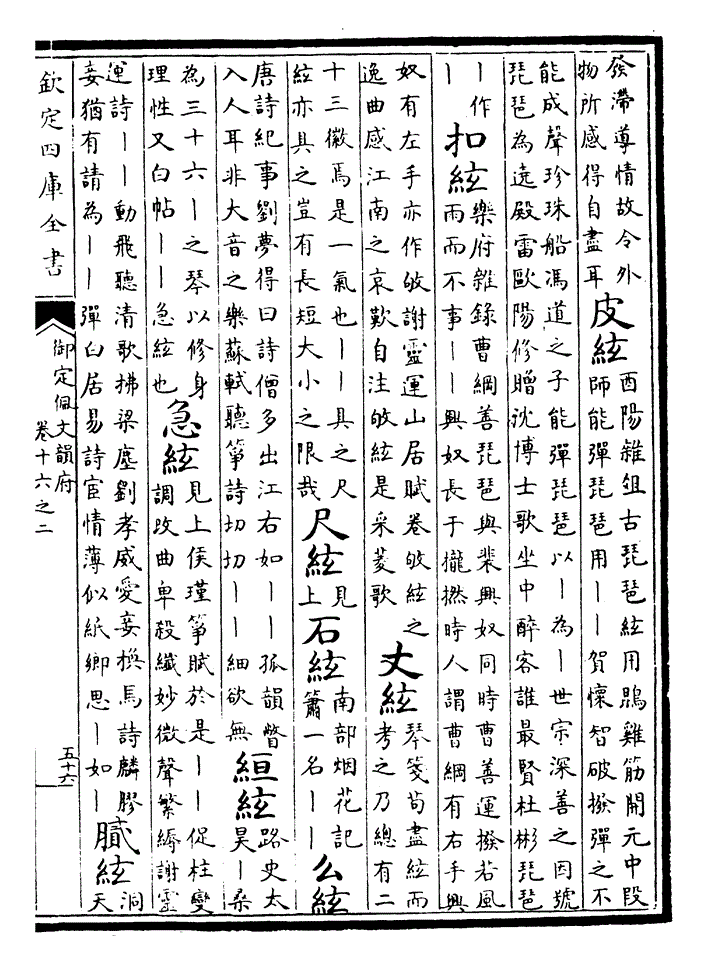 發滯導情故令外
物所感得自盡耳
皮絃
酉陽雜俎古琵琶絃用鵾雞筋開元中段
師能彈琵琶用丨丨賀懷智破撥彈之不
能成聲珍珠船馮道之子能彈琵琶以丨為丨世宗深善之因號
琵琶為遶殿雷歐陽修贈沈博士歌坐中醉客誰最賢杜彬琵琶
丨作
丨
扣絃
樂府雜錄曹綱善琵琶與裴興奴同時曹善運撥若風
雨而不事丨丨興奴長于攏撚時人謂曹綱有右手興
奴有左手亦作敂謝靈運山居賦卷敂絃之
逸曲感江南之哀歎自注敂絃是采菱歌
丈絃
琴箋荀盡絃而
考之乃總有二
十三徽焉是一氣也丨丨具之尺
絃亦具之豈有長短大小之限哉
尺絃
見
上
石絃
南部烟花記
簫一名丨丨
么絃
唐詩紀事劉夢得曰詩僧多出江右如丨丨孤韻瞥
入人耳非大音之樂蘇軾聽箏詩切切丨丨細欲無
絙絃
路史太
昊丨桑
為三十六丨之琴以修身
理性又白帖丨丨急絃也
急絃
見上侯瑾箏賦於是丨丨促柱變
調改曲卑殺纖妙微聲繁縟謝靈
運詩丨丨動飛聽清歌拂梁塵劉孝威愛妾換馬詩麟膠
妾猶有請為丨丨彈白居易詩宦情薄似紙鄉思丨如丨
膩絃
洞
天
欽定四庫全書
御定佩文韻府
卷十六之二
五十六